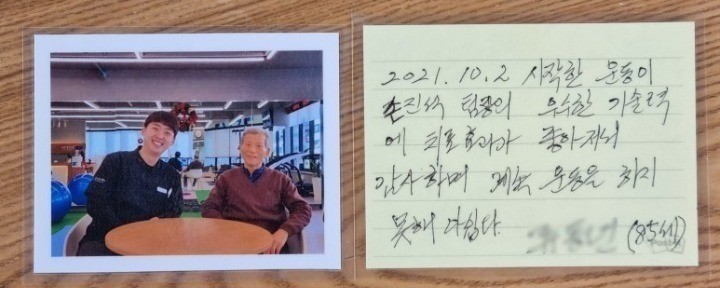 2021.10.2 시작한 운동이
손진석 팀장의 우수한 기술력
에 치료효과가 좋아져서
감사하며 계속 운동을 하지
못해 아쉽다.
(85세)